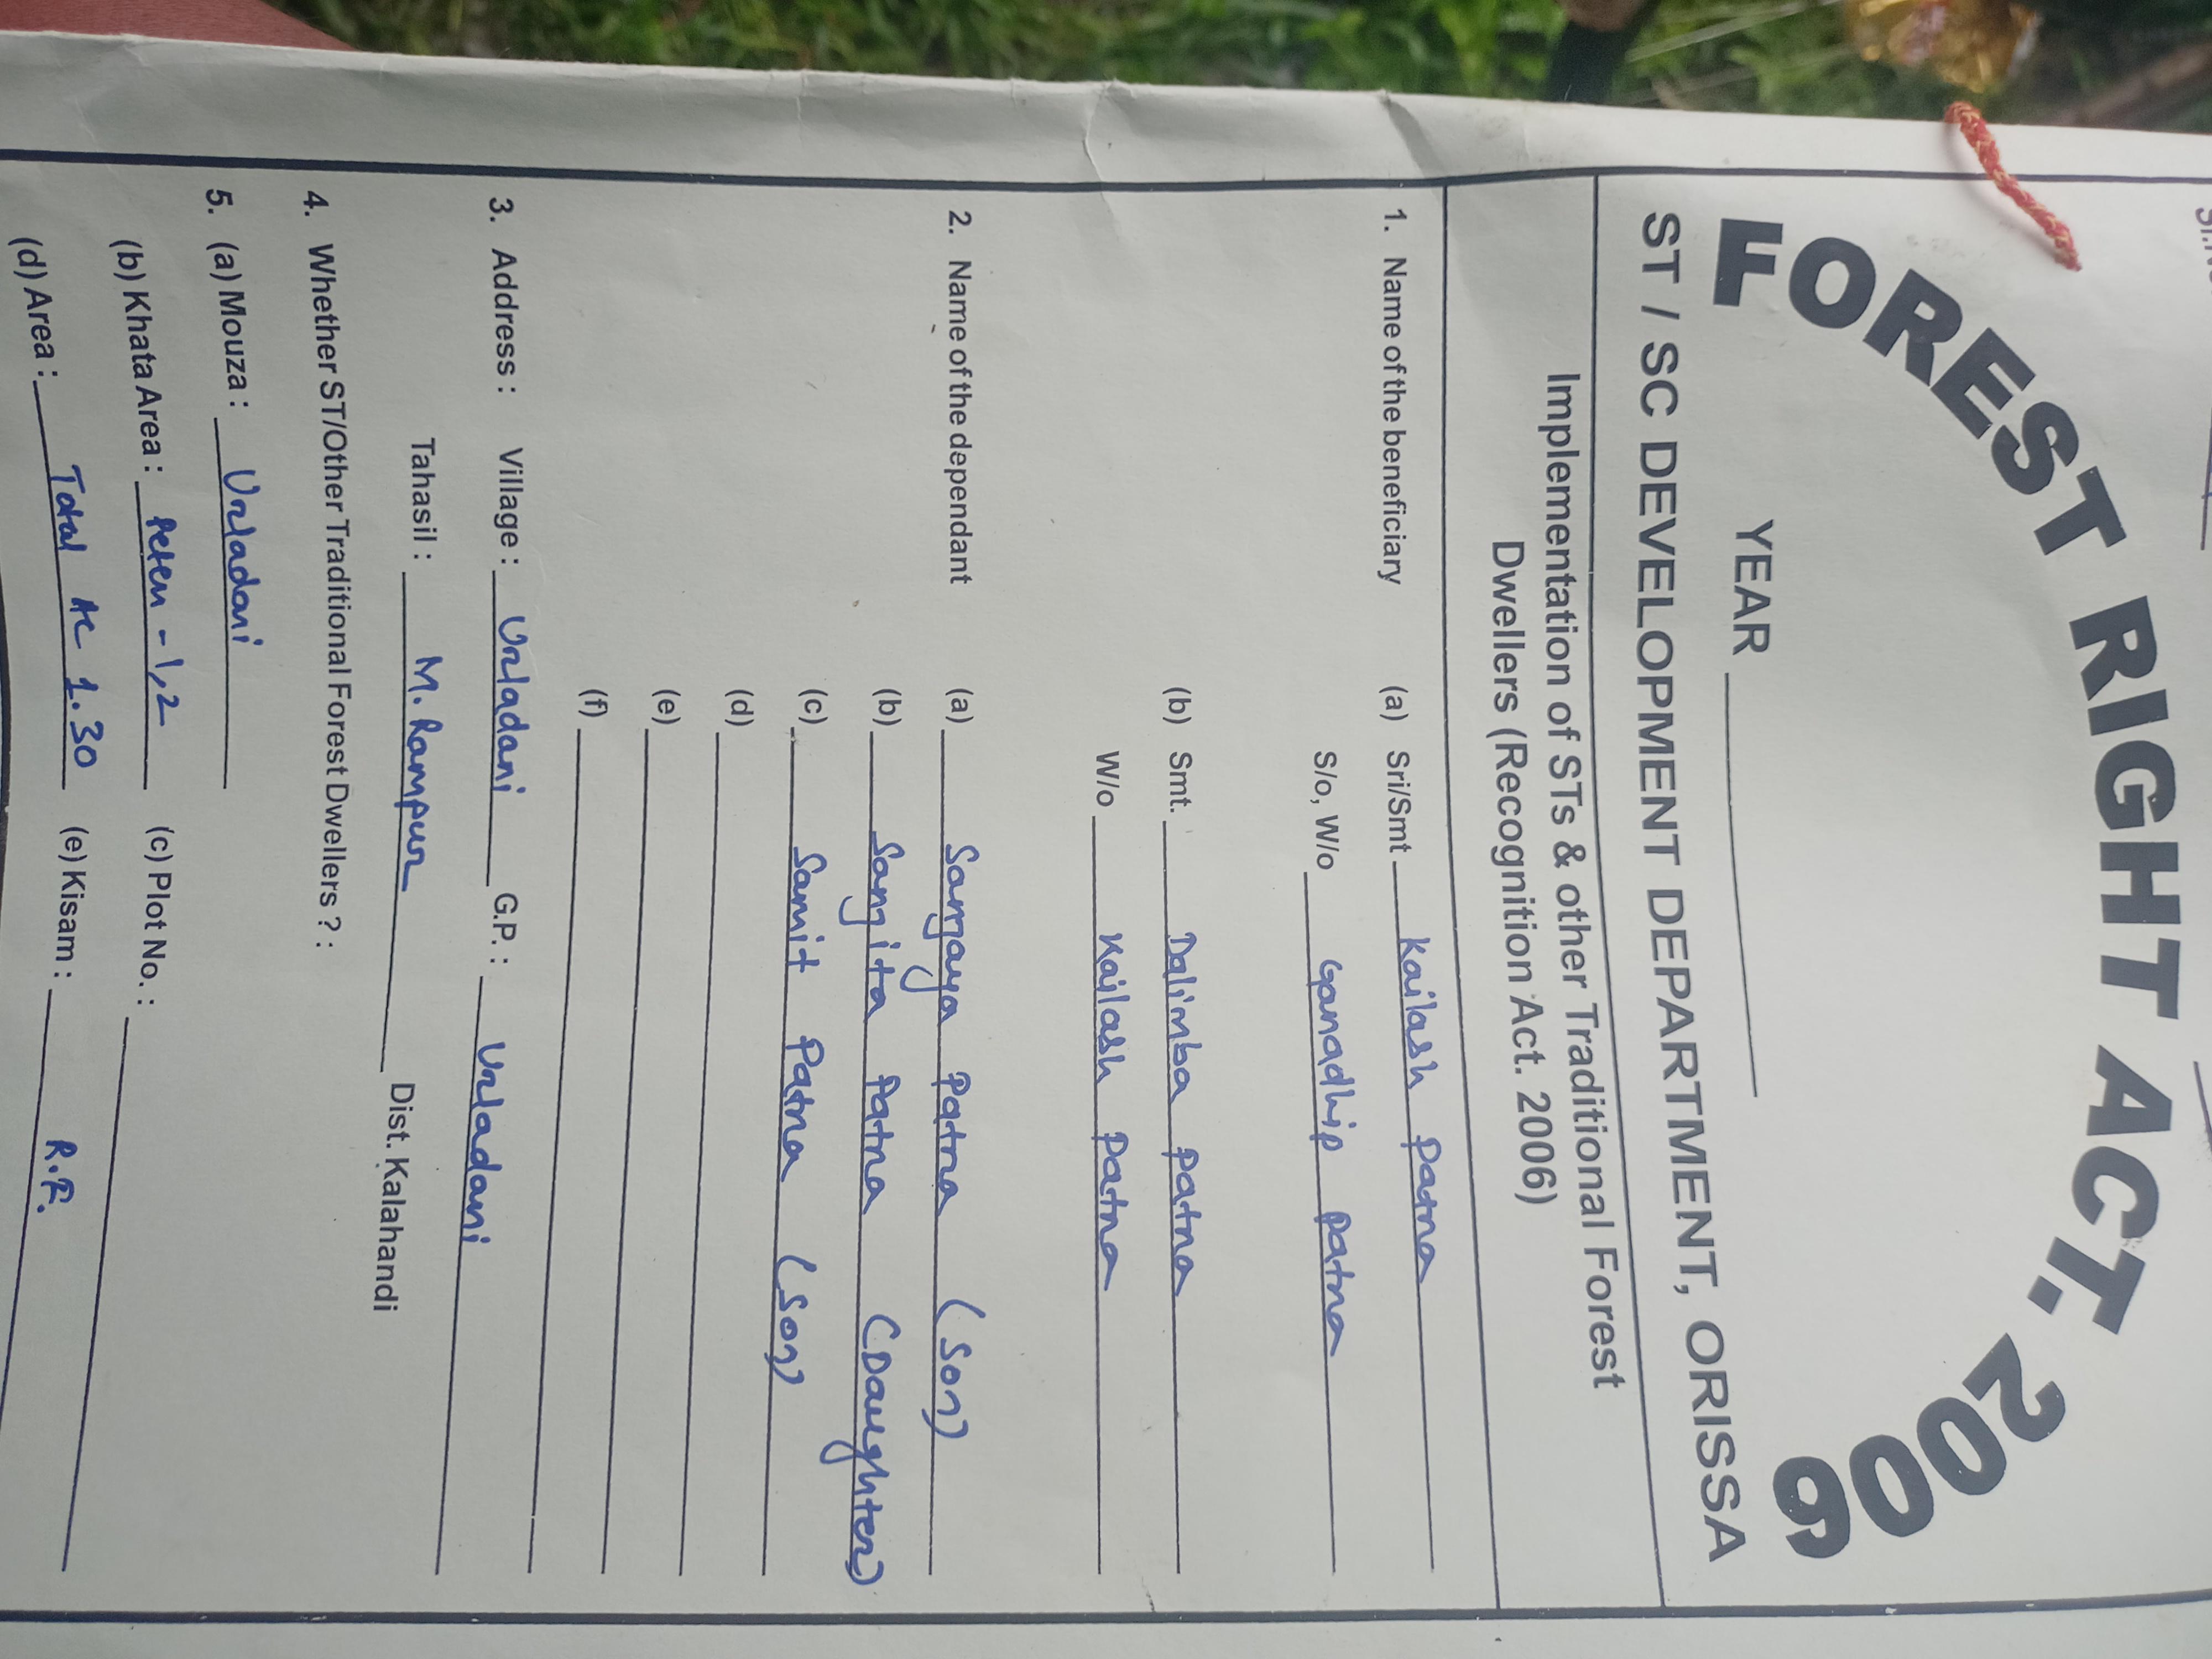 FOREST RIGHT ACT. 2006
YEAR
ST / SC DEVELOPMENT DEPARTMENT, ORISSA
Implementation of STs & other Traditional Forest
Dwellers (Recognition Act. 2006)
1. Name of the beneficiary (a) Sri/Smt Kailash Patna
S/o, W/o Ganadhip Patna
(b) Smt. Dalimba Patna
W/o Kailash Patna
2. Name of the dependant (a) Sanjaya Patna (Son)
(b) Sangita Patna (Daughter)
(c) Samit Patna (Son)
(d)
(e)
(f)
3. Address : Village : Urladani G.P. : Urladani
Tahasil : M. Rampur Dist. Kalahandi
4. Whether ST/Other Traditional Forest Dwellers ? :
5. (a) Mouza : Urladani
(b) Khata Area : - 1,2 (c) Plot No. :
(d) Area : Total Ac 1.30 (e) Kisam : R.F.